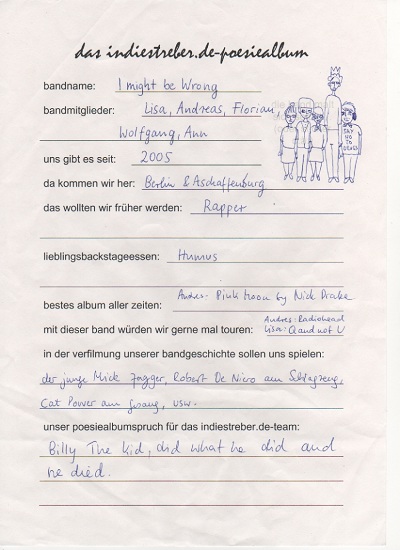 das indiestreber.de-poesiealbum
bandname: I might be Wrong
bandmitglieder: Lisa, Andreas, Florian,
Wolfgang, Ann
uns gibt es seit: 2005
da kommen wir her: Berlin & Aschaffenburg
das wollten wir früher werden: Rapper
lieblingsbackstageessen: Humus
bestes album aller zeiten: Andres: Pink moon by Nick Drake
mit dieser band würden wir gerne mal touren: Andres: Radiohead
Lisa: Q and not U
in der verfilmung unserer bandgeschichte sollen uns spielen:
der junge Mick Jagger, Robert De Niro am Schlagzeug,
Cat Power am Gesang, usw.
unser poesiealbumspruch für das indiestreber.de-team:
Billy The Kid, did what he did and
he died.
SAY
NO TO
DRUGS